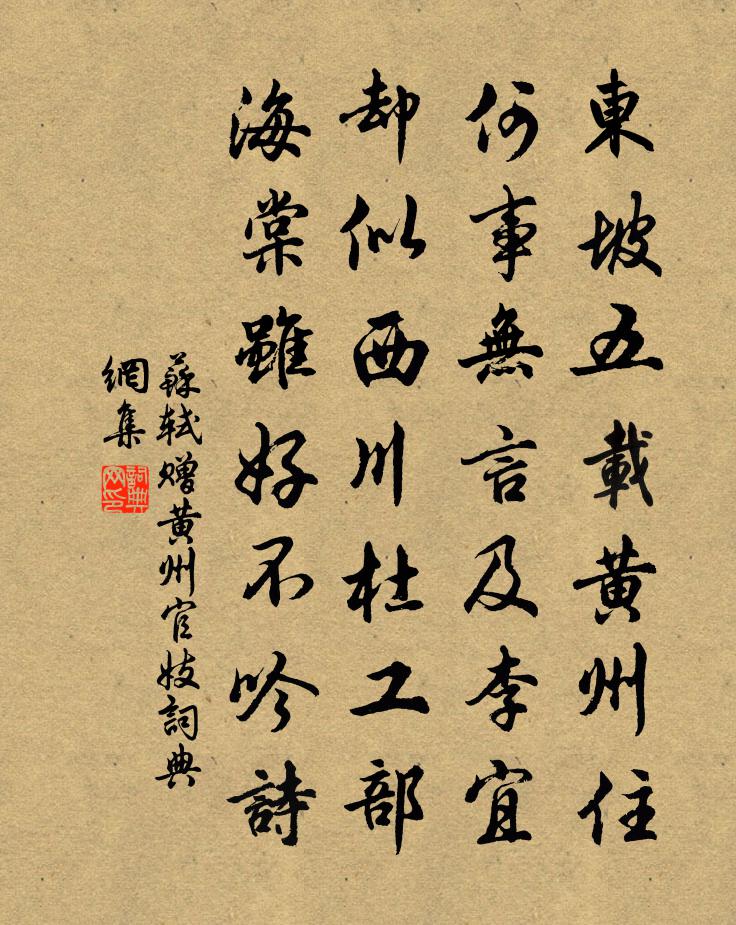 東坡五載黄州住
何事無言及李宜
却似西川杜工部
海棠雖好不吟詩
蘇軾贈黄州官妓詞典
網集
詞典
网印